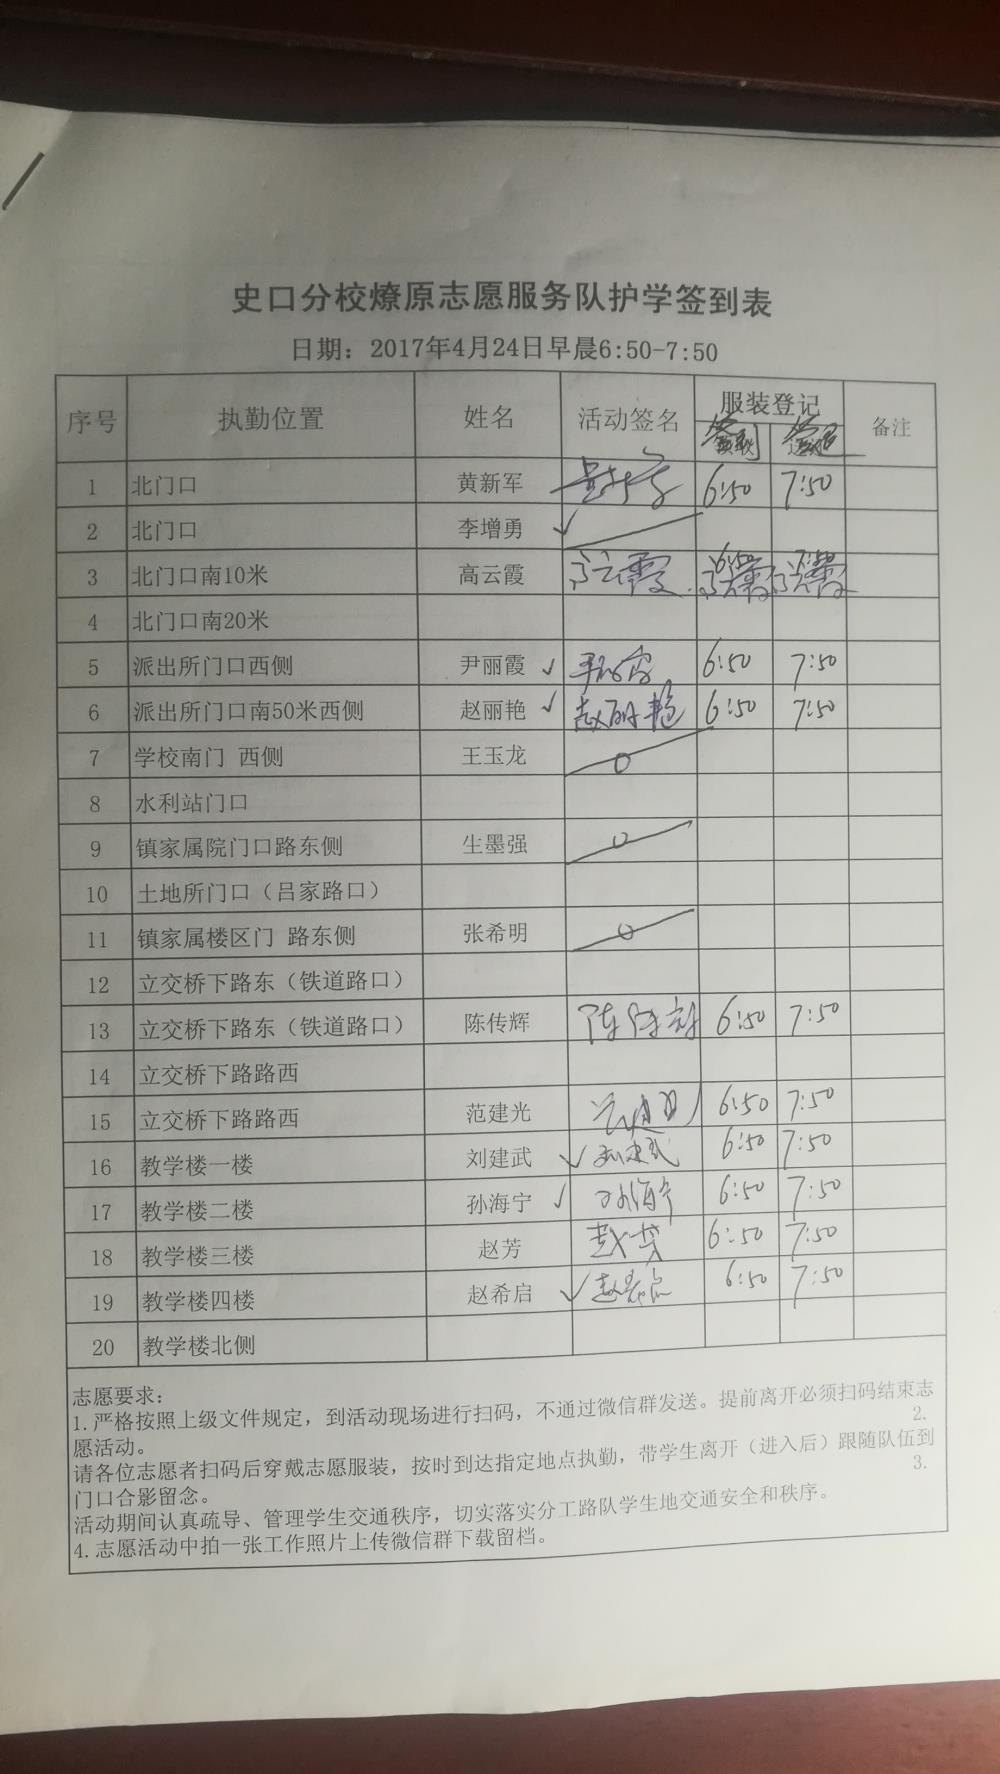 史口分校燎原志愿服务队护学签到表
日期：2017年4月24日早晨6:50-7:50
序号 执勤位置 姓名 活动签名 服装登记 备注
签到 签退
1 北门口 黄新军 6:50 7:50
2 北门口 李增勇 ✓
3 北门口南10米 高云霞 高云霞 6:50
4 北门口南20米
5 派出所门口西侧 尹丽霞 ✓ 尹丽霞 6:50 7:50
6 派出所门口南50米西侧 赵丽艳 ✓ 赵丽艳 6:50 7:50
7 学校南门 西侧 王玉龙 0
8 水利站门口
9 镇家属院门口路东侧 生墨强 0
10 土地所门口（吕家路口）
11 镇家属楼区门 路东侧 张希明 0
12 立交桥下路东（铁道路口）
13 立交桥下路东（铁道路口） 陈传辉 陈传辉 6:50 7:50
14 立交桥下路路西
15 立交桥下路路西 范建光 6:50 7:50
16 教学楼一楼 刘建武 ✓ 刘建武 6:50 7:50
17 教学楼二楼 孙海宁 ✓ 孙海宁 6:50 7:50
18 教学楼三楼 赵芳 赵芳 6:50 7:50
19 教学楼四楼 赵希启 ✓ 赵希启 6:50 7:50
20 教学楼北侧
志愿要求：
1.严格按照上级文件规定，到活动现场进行扫码，不通过微信群发送。提前离开必须扫码结束志
愿活动。 2.
请各位志愿者扫码后穿戴志愿服装，按时到达指定地点执勤，带学生离开（进入后）跟随队伍到
门口合影留念。 3.
活动期间认真疏导、管理学生交通秩序，切实落实分工路队学生地交通安全和秩序。
4.志愿活动中拍一张工作照片上传微信群下载留档。